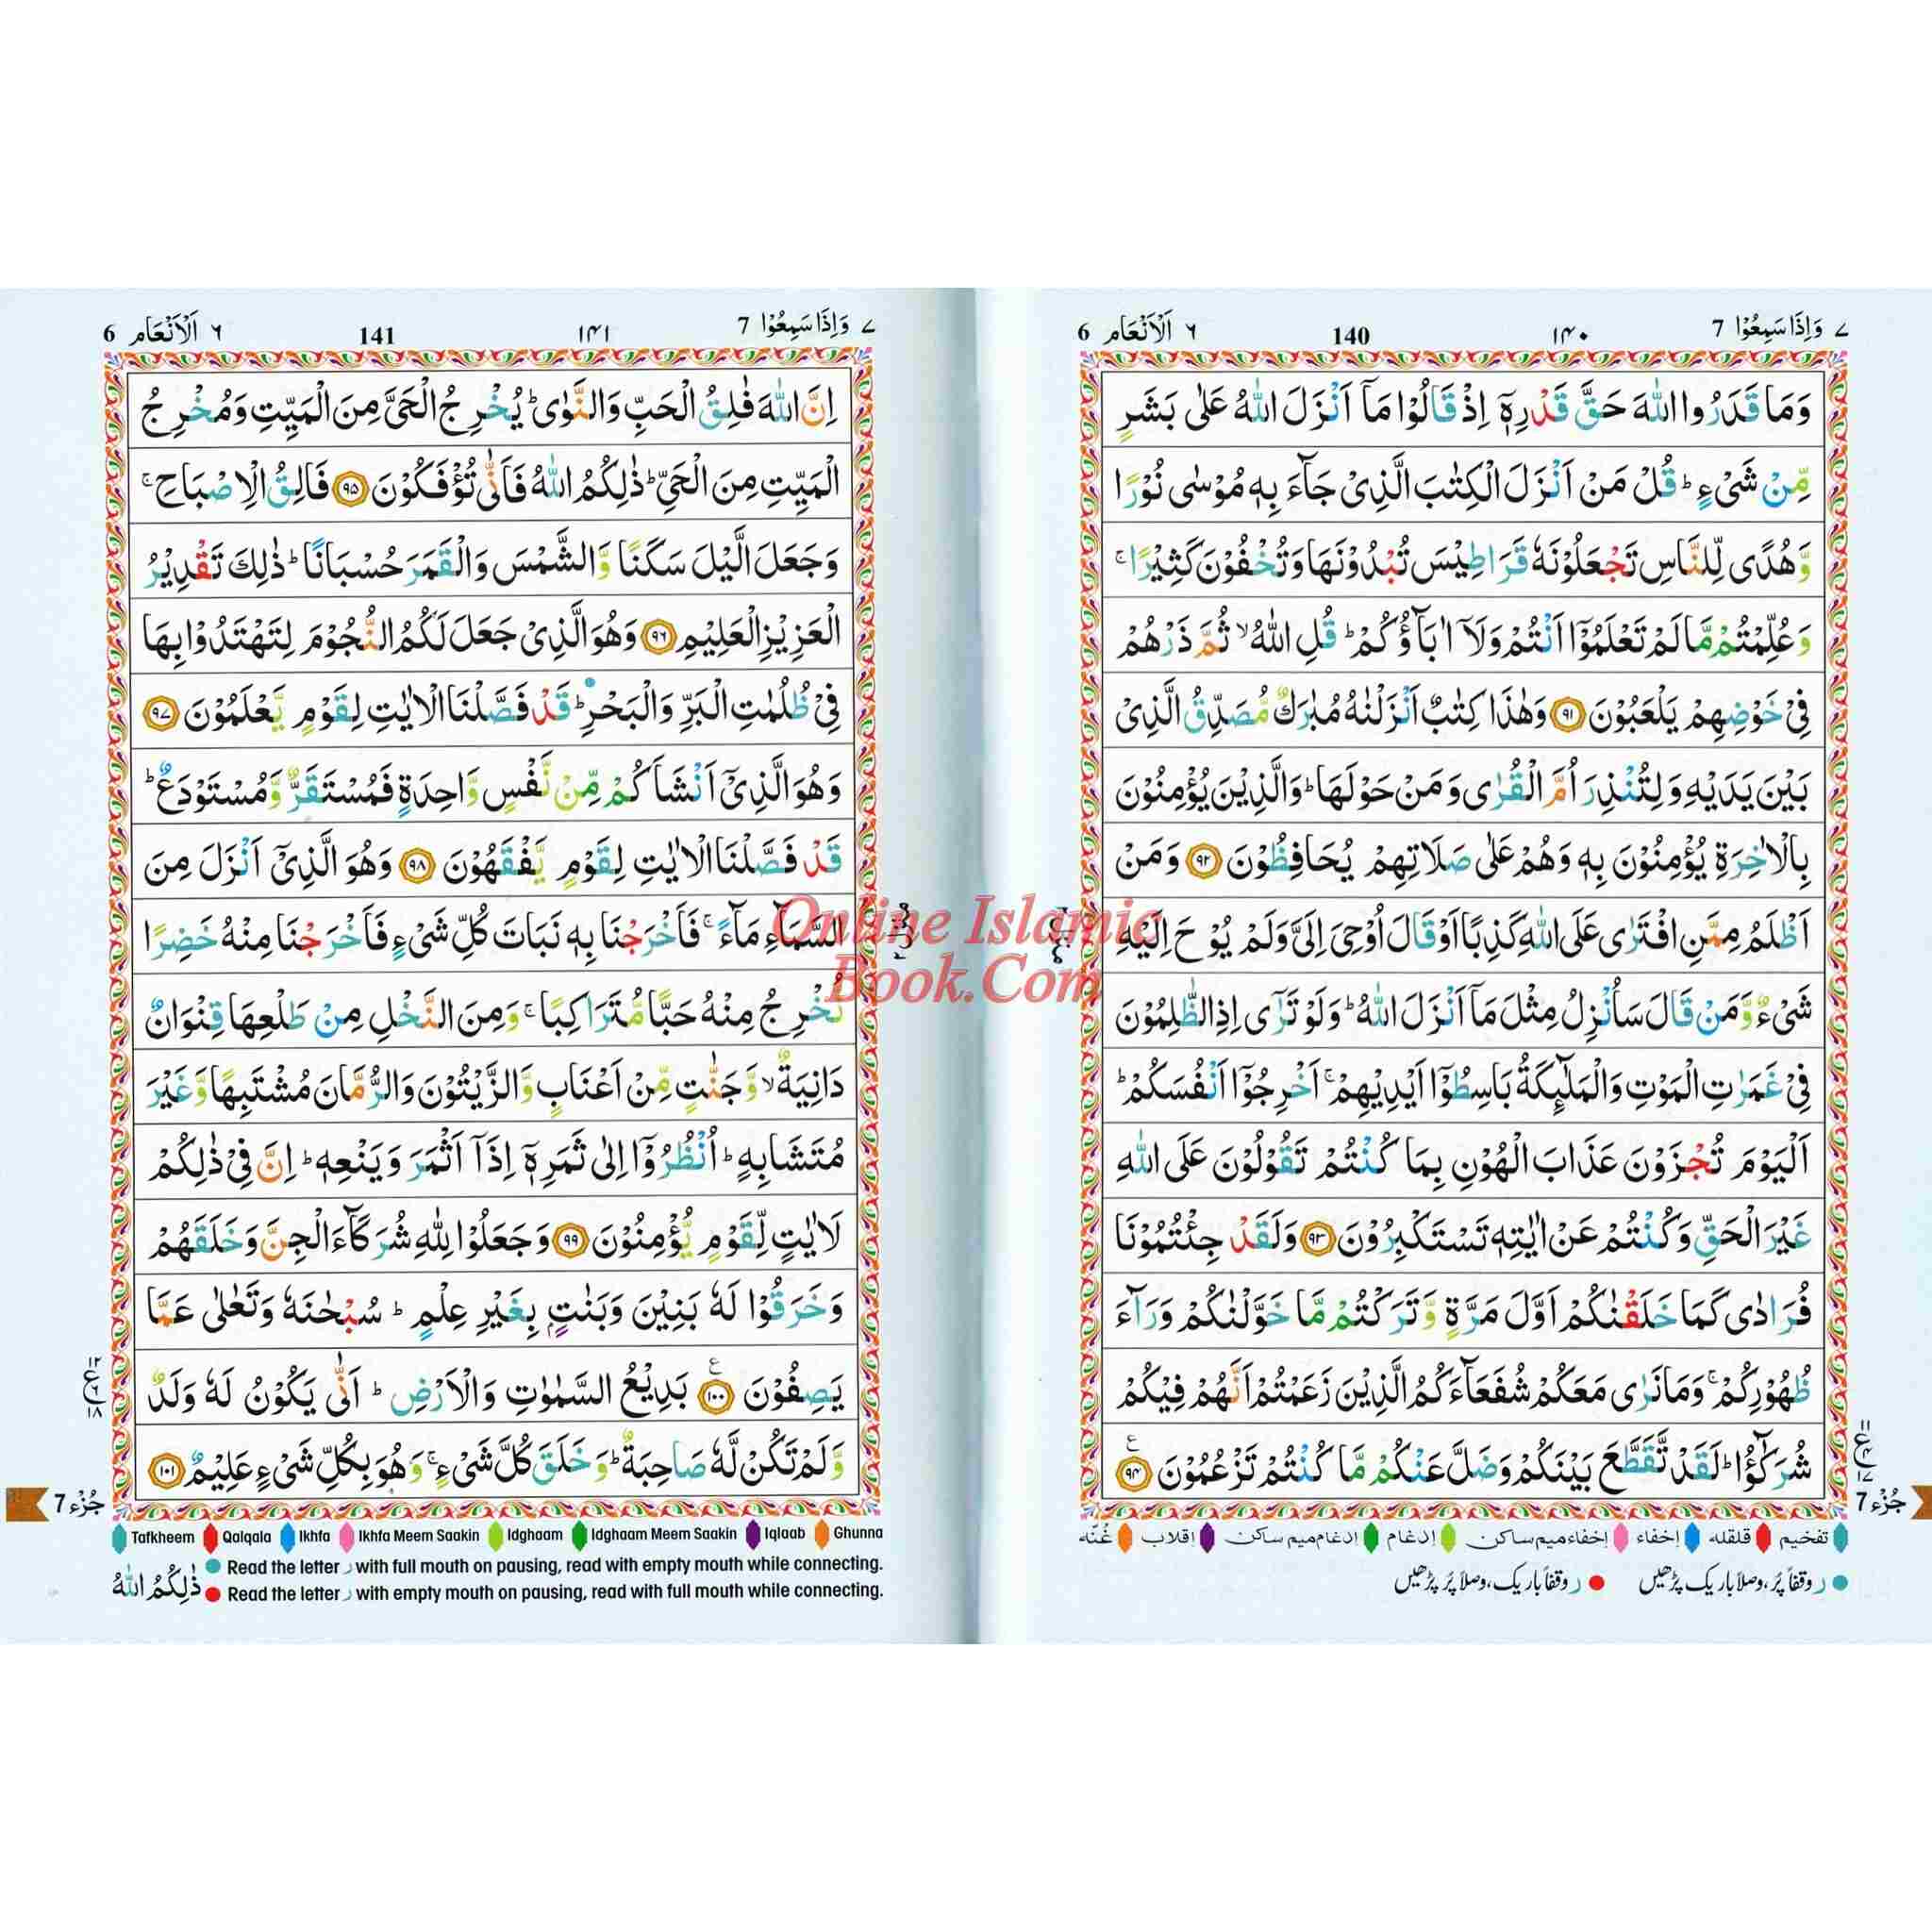 ٧ وَاِذَا سَمِعُوْا 7
١٤٠
140
٦ اَلْاَنْعَام 6
وَمَا قَدَرُوا اللّٰهَ حَقَّ قَدْرِهٖۤ اِذْ قَالُوْا مَاۤ اَنْزَلَ اللّٰهُ عَلٰى بَشَرٍ
مِّنْ شَيْءٍ ؕ قُلْ مَنْ اَنْزَلَ الْكِتٰبَ الَّذِيْ جَآءَ بِهٖ مُوْسٰى نُوْرًا
وَّهُدًى لِّلنَّاسِ تَجْعَلُوْنَهٗ قَرَاطِيْسَ تُبْدُوْنَهَا وَتُخْفُوْنَ كَثِيْرًا ۚ
وَعُلِّمْتُمْ مَّا لَمْ تَعْلَمُوْۤا اَنْتُمْ وَلَاۤ اٰبَآؤُكُمْ ؕ قُلِ اللّٰهُ ۙ ثُمَّ ذَرْهُمْ
فِيْ خَوْضِهِمْ يَلْعَبُوْنَ ٩١ وَهٰذَا كِتٰبٌ اَنْزَلْنٰهُ مُبٰرَكٌ مُّصَدِّقُ الَّذِيْ
بَيْنَ يَدَيْهِ وَلِتُنْذِرَ اُمَّ الْقُرٰى وَمَنْ حَوْلَهَا ؕ وَالَّذِيْنَ يُؤْمِنُوْنَ
بِالْاٰخِرَةِ يُؤْمِنُوْنَ بِهٖ وَهُمْ عَلٰى صَلَاتِهِمْ يُحَافِظُوْنَ ٩٢ وَمَنْ
اَظْلَمُ مِمَّنِ افْتَرٰى عَلَى اللّٰهِ كَذِبًا اَوْ قَالَ اُوْحِيَ اِلَيَّ وَلَمْ يُوْحَ اِلَيْهِ
شَيْءٌ وَّمَنْ قَالَ سَاُنْزِلُ مِثْلَ مَاۤ اَنْزَلَ اللّٰهُ ؕ وَلَوْ تَرٰۤى اِذِ الظّٰلِمُوْنَ
فِيْ غَمَرٰتِ الْمَوْتِ وَالْمَلٰٓئِكَةُ بَاسِطُوْۤا اَيْدِيْهِمْ ۚ اَخْرِجُوْۤا اَنْفُسَكُمْ ؕ
اَلْيَوْمَ تُجْزَوْنَ عَذَابَ الْهُوْنِ بِمَا كُنْتُمْ تَقُوْلُوْنَ عَلَى اللّٰهِ
غَيْرَ الْحَقِّ وَكُنْتُمْ عَنْ اٰيٰتِهٖ تَسْتَكْبِرُوْنَ ٩٣ وَلَقَدْ جِئْتُمُوْنَا
فُرَادٰى كَمَا خَلَقْنٰكُمْ اَوَّلَ مَرَّةٍ وَّتَرَكْتُمْ مَّا خَوَّلْنٰكُمْ وَرَآءَ
ظُهُوْرِكُمْ ۚ وَمَا نَرٰى مَعَكُمْ شُفَعَآءَكُمُ الَّذِيْنَ زَعَمْتُمْ اَنَّهُمْ فِيْكُمْ
شُرَكٰٓؤُا ؕ لَقَدْ تَّقَطَّعَ بَيْنَكُمْ وَضَلَّ عَنْكُمْ مَّا كُنْتُمْ تَزْعُمُوْنَ ٩٤
١١
ع ٤
١٧
جُزْء 7
تفخیم قلقله اِخفاء اِخفاء میم ساکن اِدغام اِدغام میم ساکن اِقلاب غُنّه
ر وقفاً پُر، وصلاً باریک پڑھیں ر وقفاً باریک، وصلاً پُر پڑھیں
٧ وَاِذَا سَمِعُوْا 7
١٤١
141
٦ اَلْاَنْعَام 6
اِنَّ اللّٰهَ فٰلِقُ الْحَبِّ وَالنَّوٰى ؕ يُخْرِجُ الْحَيَّ مِنَ الْمَيِّتِ وَمُخْرِجُ
الْمَيِّتِ مِنَ الْحَيِّ ؕ ذٰلِكُمُ اللّٰهُ فَاَنّٰى تُؤْفَكُوْنَ ٩٥ فَالِقُ الْاِصْبَاحِ ۚ
وَجَعَلَ الَّيْلَ سَكَنًا وَّالشَّمْسَ وَالْقَمَرَ حُسْبَانًا ؕ ذٰلِكَ تَقْدِيْرُ
الْعَزِيْزِ الْعَلِيْمِ ٩٦ وَهُوَ الَّذِيْ جَعَلَ لَكُمُ النُّجُوْمَ لِتَهْتَدُوْا بِهَا
فِيْ ظُلُمٰتِ الْبَرِّ وَالْبَحْرِ ؕ قَدْ فَصَّلْنَا الْاٰيٰتِ لِقَوْمٍ يَّعْلَمُوْنَ ٩٧
وَهُوَ الَّذِيْۤ اَنْشَاَكُمْ مِّنْ نَّفْسٍ وَّاحِدَةٍ فَمُسْتَقَرٌّ وَّمُسْتَوْدَعٌ ؕ
قَدْ فَصَّلْنَا الْاٰيٰتِ لِقَوْمٍ يَّفْقَهُوْنَ ٩٨ وَهُوَ الَّذِيْۤ اَنْزَلَ مِنَ
السَّمَآءِ مَآءً ۚ فَاَخْرَجْنَا بِهٖ نَبَاتَ كُلِّ شَيْءٍ فَاَخْرَجْنَا مِنْهُ خَضِرًا
نُّخْرِجُ مِنْهُ حَبًّا مُّتَرَاكِبًا ۚ وَمِنَ النَّخْلِ مِنْ طَلْعِهَا قِنْوَانٌ
دَانِيَةٌ ۙ وَّجَنّٰتٍ مِّنْ اَعْنَابٍ وَّالزَّيْتُوْنَ وَالرُّمَّانَ مُشْتَبِهًا وَّغَيْرَ
مُتَشَابِهٍ ؕ اُنْظُرُوْۤا اِلٰى ثَمَرِهٖۤ اِذَاۤ اَثْمَرَ وَيَنْعِهٖ ؕ اِنَّ فِيْ ذٰلِكُمْ
لَاٰيٰتٍ لِّقَوْمٍ يُّؤْمِنُوْنَ ٩٩ وَجَعَلُوْا لِلّٰهِ شُرَكَآءَ الْجِنَّ وَخَلَقَهُمْ
وَخَرَقُوْا لَهٗ بَنِيْنَ وَبَنٰتٍۭ بِغَيْرِ عِلْمٍ ؕ سُبْحٰنَهٗ وَتَعٰلٰى عَمَّا
يَصِفُوْنَ ١٠٠ بَدِيْعُ السَّمٰوٰتِ وَالْاَرْضِ ؕ اَنّٰى يَكُوْنُ لَهٗ وَلَدٌ
وَّلَمْ تَكُنْ لَّهٗ صَاحِبَةٌ ؕ وَخَلَقَ كُلَّ شَيْءٍ ۚ وَهُوَ بِكُلِّ شَيْءٍ عَلِيْمٌ ١٠١
١٢
ع ٦
١٨
جُزْء 7
Tafkheem Qalqala Ikhfa Ikhfa Meem Saakin Idghaam Idghaam Meem Saakin Iqlaab Ghunna
Read the letter ر with full mouth on pausing, read with empty mouth while connecting.
Read the letter ر with empty mouth on pausing, read with full mouth while connecting.
ذٰلِكُمُ اللّٰهُ
Online Islamic
Book.Com